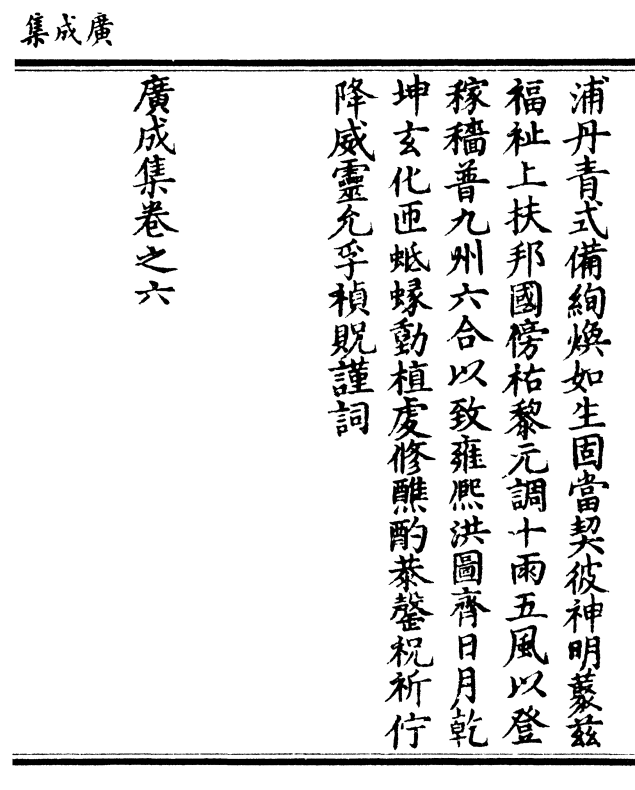 集成廣
浦丹青式備絢煥如生固當契彼神明藂茲
福祉上扶邦國傍祐黎元調十雨五風以登
稼穡普九州六合以致雍熈洪圖齊日月乾
坤玄化匝蚳蝝動植虔修醮酌恭罄祝祈佇
降威靈允孚禎貺謹詞
廣成集卷之六